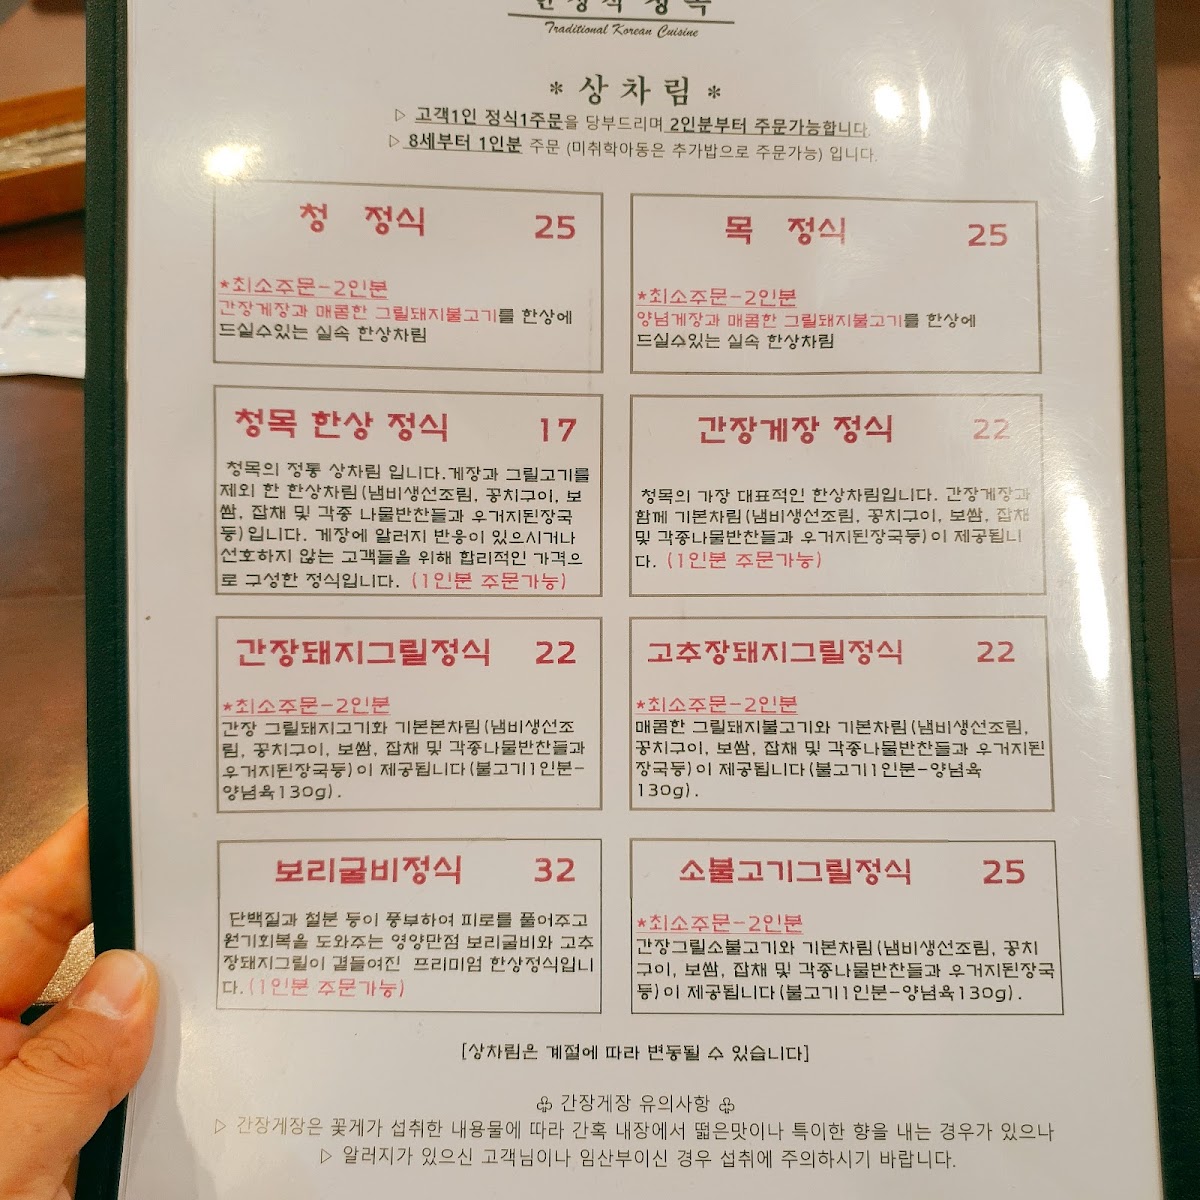 한정식 청목
Traditional Korean Cuisine
* 상차림 *
▷ 고객1인 정식1주문을 당부드리며 2인분부터 주문가능합니다.
▷ 8세부터 1인분 주문 (미취학아동은 추가밥으로 주문가능) 입니다.
청 정식 25
*최소주문-2인분
간장게장과 매콤한 그릴돼지불고기를 한상에
드실수있는 실속 한상차림
목 정식 25
*최소주문-2인분
양념게장과 매콤한 그릴돼지불고기를 한상에
드실수있는 실속 한상차림
청목 한상 정식 17
청목의 정통 상차림 입니다.게장과 그릴고기를
제외 한 한상차림(냄비생선조림, 꽁치구이, 보
쌈, 잡채 및 각종 나물반찬들과 우거지된장국
등)입니다. 게장에 알러지 반응이 있으시거나
선호하지 않는 고객들을 위해 합리적인 가격으
로 구성한 정식입니다. (1인분 주문가능)
간장게장 정식 22
청목의 가장 대표적인 한상차림입니다. 간장게장과
함께 기본차림(냄비생선조림, 꽁치구이, 보쌈, 잡채
및 각종나물반찬들과 우거지된장국등)이 제공됩니
다. (1인분 주문가능)
간장돼지그릴정식 22
*최소주문-2인분
간장 그릴돼지고기와 기본본차림(냄비생선조
림, 꽁치구이, 보쌈, 잡채 및 각종나물반찬들과
우거지된장국등)이 제공됩니다(불고기1인분-
양념육130g).
고추장돼지그릴정식 22
*최소주문-2인분
매콤한 그릴돼지불고기와 기본차림(냄비생선조림,
꽁치구이, 보쌈, 잡채 및 각종나물반찬들과 우거지된
장국등)이 제공됩니다(불고기1인분-양념육
130g).
보리굴비정식 32
단백질과 철분 등이 풍부하여 피로를 풀어주고
원기회복을 도와주는 영양만점 보리굴비와 고추
장돼지그릴이 곁들여진 프리미엄 한상정식입니
다.(1인분 주문가능)
소불고기그릴정식 25
*최소주문-2인분
간장그릴소불고기와 기본차림(냄비생선조림, 꽁치
구이, 보쌈, 잡채 및 각종나물반찬들과 우거지된장국
등)이 제공됩니다(불고기1인분-양념육130g).
[상차림은 계절에 따라 변동될 수 있습니다]
♧ 간장게장 유의사항 ♧
▷ 간장게장은 꽃게가 섭취한 내용물에 따라 간혹 내장에서 떫은맛이나 특이한 향을 내는 경우가 있으나
▷ 알러지가 있으신 고객님이나 임산부이신 경우 섭취에 주의하시기 바랍니다.